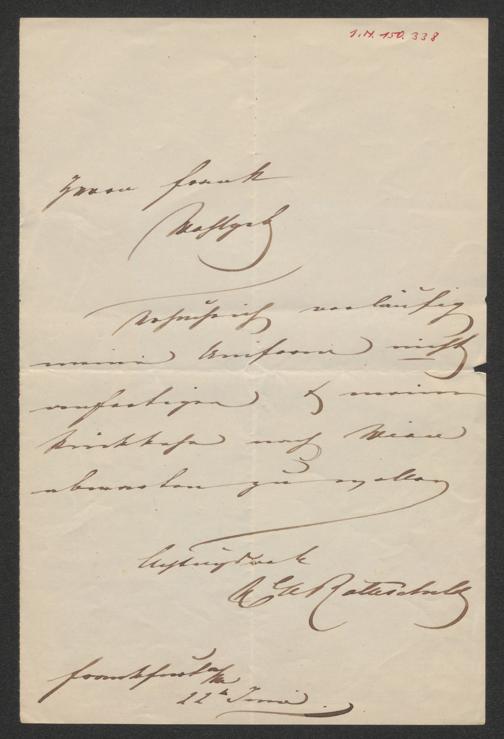 I. N. 150.338
Herrn Frank
Wohlgeb
Ersuche Sie vorläufig
meine Uniform nicht
anfertigen & meine
Rückkehr nach Wien
abwarten zu wollen
Achtungsvoll
Rothschild
Frankfurt a/M
22t Juni